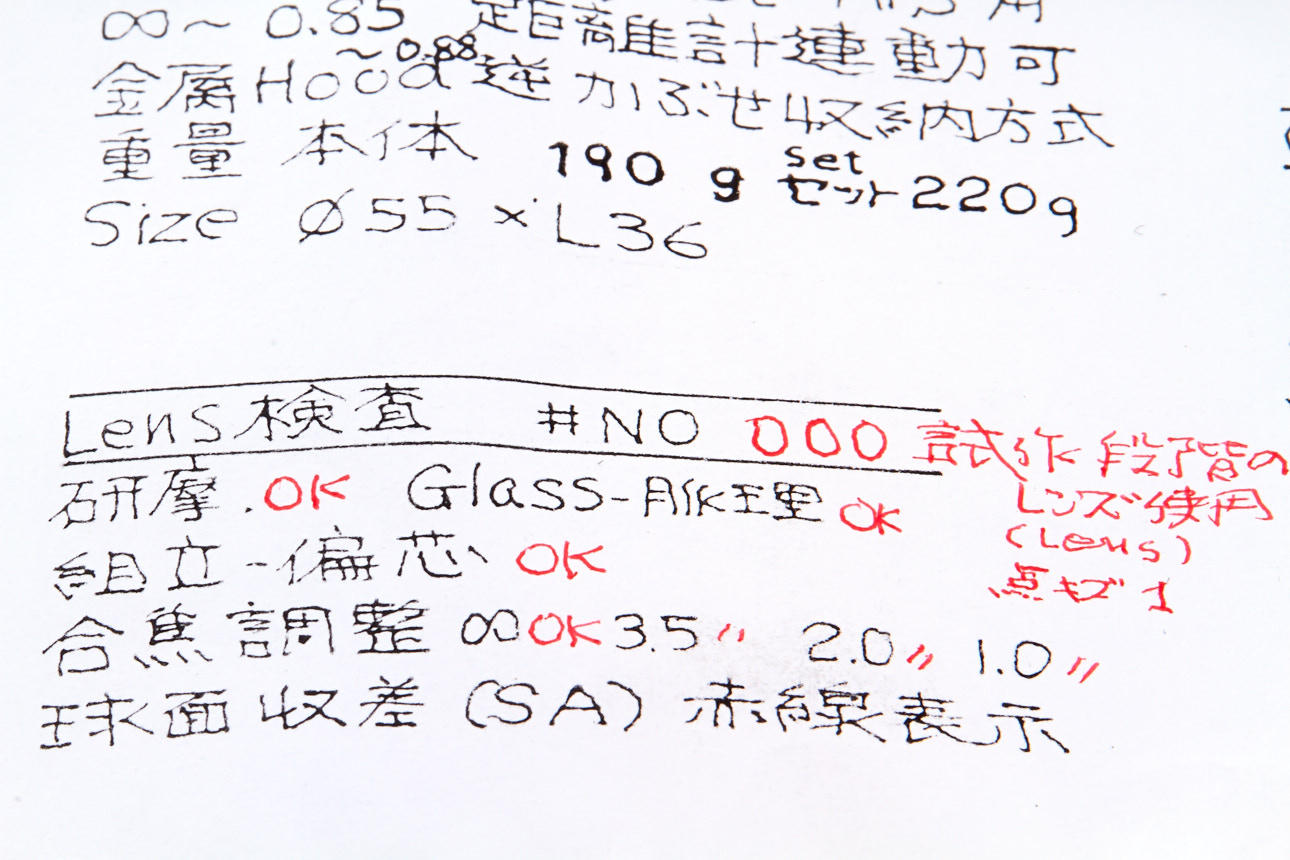 ∞~ 0.85 距離計連動可
~0.88
金属Hood逆かぶせ収納方式
重量 本体 190g set セット220g
Size Ø55 × L36
Lens検査 #NO 000 試作段階の
レンズ使用
(Lens)
点キズ 1
研摩.OK Glass-脈理 OK
組立-偏芯 OK
合焦調整 ∞OK 3.5〃 2.0〃 1.0〃
球面収差 (SA) 赤線表示